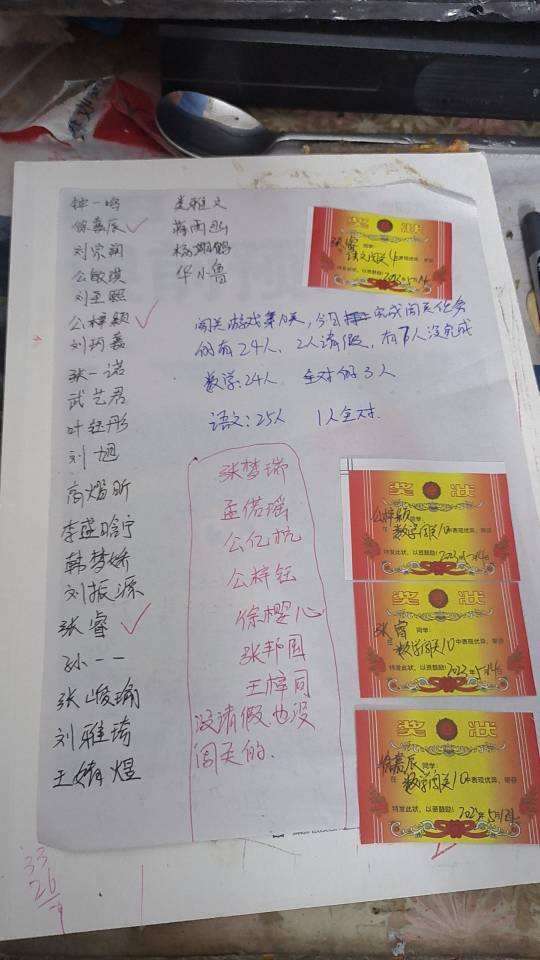 钟一鸣
徐嘉辰
刘宗润
公敏琪
刘圣熙
公梓颖
刘珂嘉
张一诺
武艺君
叶钰彤
刘旭
高熠昕
李盛晗宁
韩梦娇
刘振源
张睿
孙一一
张峻瑜
刘雅琦
王婧煜
娄雅文
蒋雨彤
杨期鹤
华小鲁
奖状
张睿 同学:
在 语文闯关 中表现优异,荣获
特发此状,以资鼓励!
闯关游戏第 天,今日 完成闯关任务
的有24人,2人请假,有7人没完成
数学:24人 全对的3人
语文:25人 1人全对.
张梦瑞
孟偌瑶
公亿杭
公梓钰
徐樱心
张邦国
王梓同
没请假也没
闯关的.
奖状
公梓颖 同学:
在 数学闯关10 中表现优异,荣获
特发此状,以资鼓励!
奖状
张睿 同学:
在 数学闯关10 中表现优异,荣获
特发此状,以资鼓励! 2023年5月14日
奖状
徐嘉辰 同学:
在 数学闯关10 中表现优异,荣获
特发此状,以资鼓励!
33
26
7